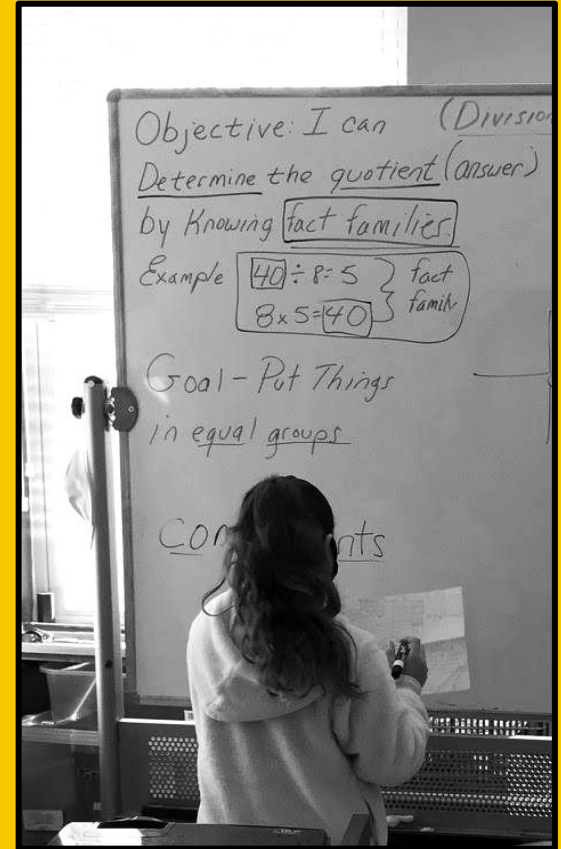 Objective: I can (Division
Determine the quotient (answer)
by Knowing fact families.
Example 40 ÷ 8 = 5 } fact
8 x 5 = 40 } family
Goal - Put Things
in equal groups